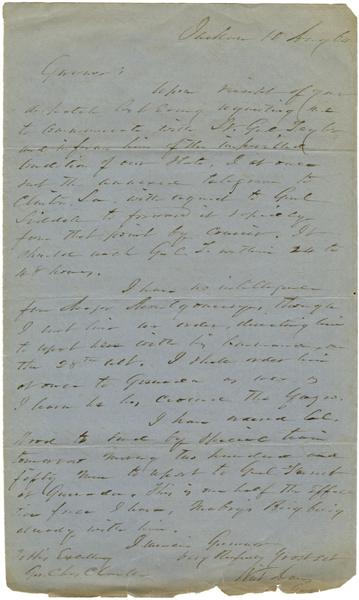 Jackson 10 Aug 64
Governor:
Upon receipt of your
dispatch last evening requiring me
to communicate with Lt. Genl. Taylor
and inform him of the
condition of our State, I at once
sent the telegram to
Clinton, La. with request to Genl
to forward it speedily
from that point by courier. It
should reach Genl T. within 24 to
48 hours.
I have no intelligence
from Major Montgomery, though
I sent him an order, directing him
to report here with his command, on
the 28th ult. I shall order him
at once to Grenada as soon as
I learn he has crossed the Yazoo.
I have ordered Col.
Wood to send by special train
tomorrow morning two hundred and
fifty men to report to Genl
at Grenada. This is one half the effec
tive force I have, Mabry's Brig being
already with him.
I remain Governor
very Respectfully Your obt Svt
To His Excellency
Gov. Chas Clark